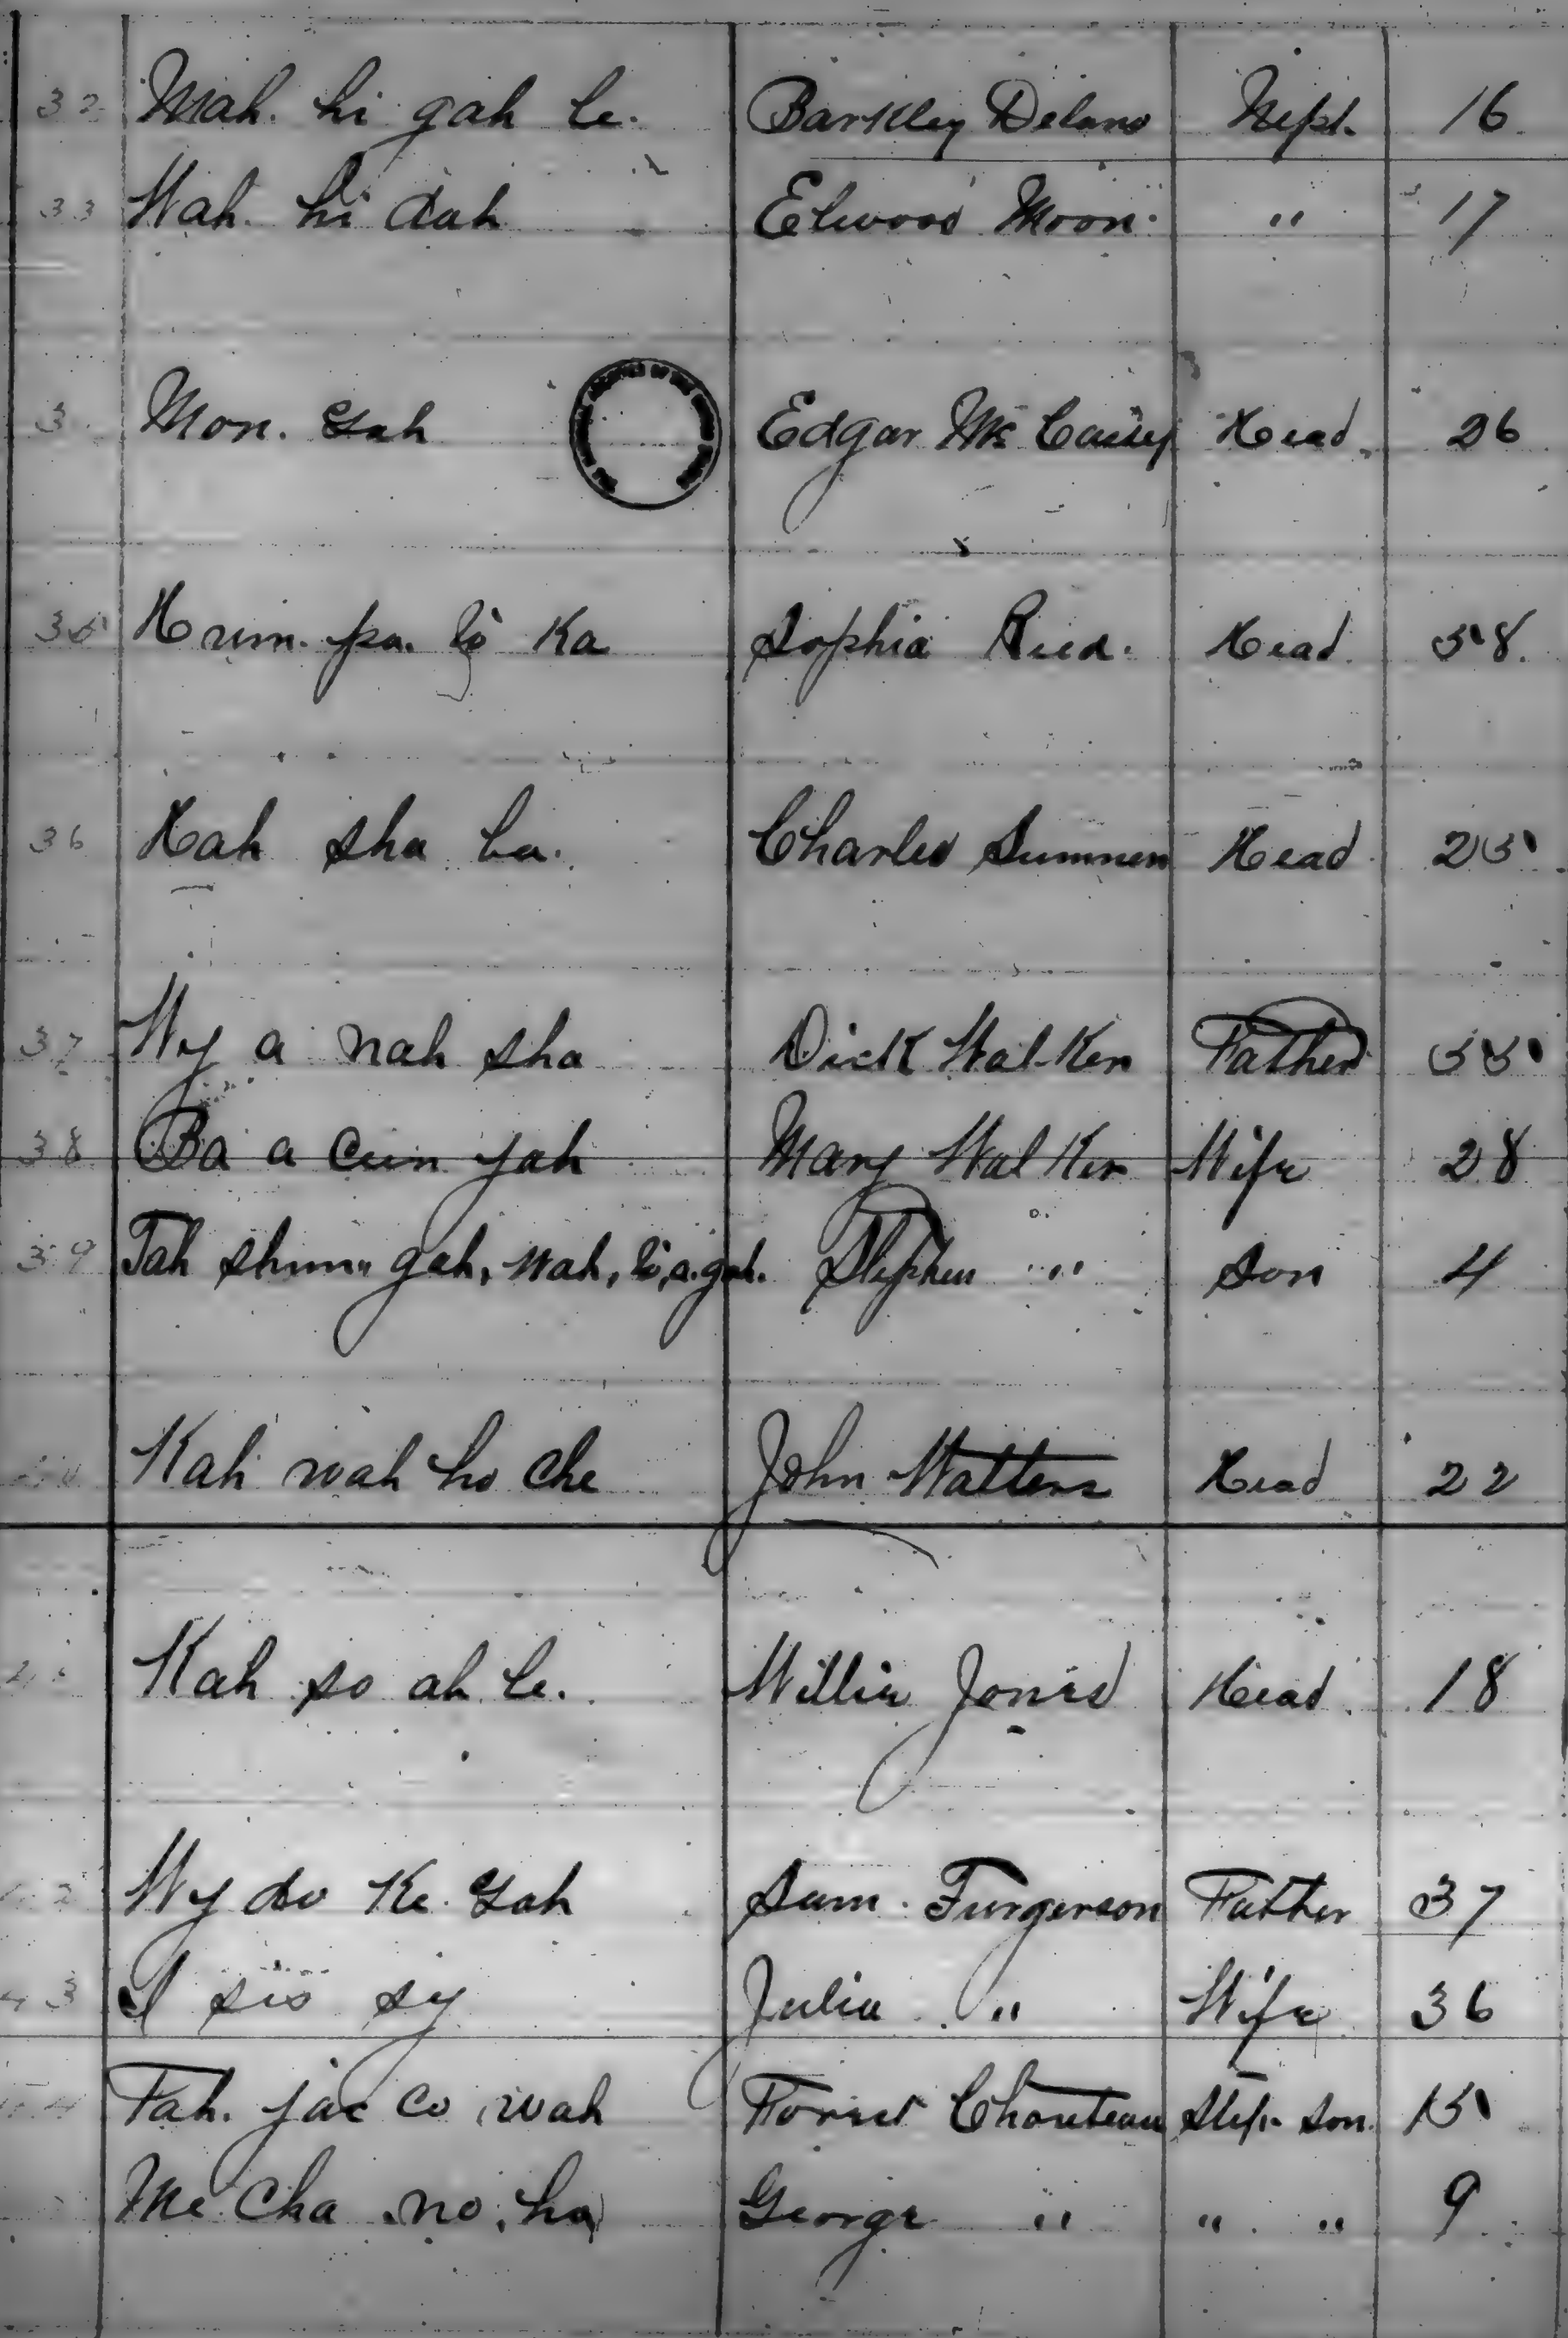 32 Mah. hi gah le. Barkley Delano Neph. 16
33 Wah. hi dah Elwood Moon. " 17
3 Mon. gah Edgar Mc Head. 26
35 Hum. pa. Ka Sophia Reed. Head 58.
36 Hah sha ba. Charles Sumner Head 25
37 Wy a nah sha Dick Walker Father 55
38 Ba a cun yah Mary Walker Wife 28
39 Tah shun gah, wah, a. gah. Stephen " Son 4
Kah wah ho che John Watters Head 22
Kah so ah le. Willie Jones Head 18
2 Wy do Ke gah Sam. Furgerson Father 37
43 sis sy Julia " Wife 36
4 Tah. jac co wah Forest Chouteau Step son. 15
Me Cha no. ha George " " " 9